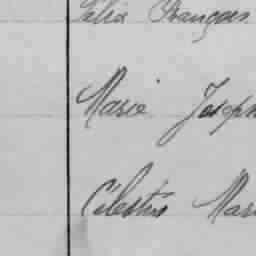 Félix François
Marie Joseph
Célestin Mari